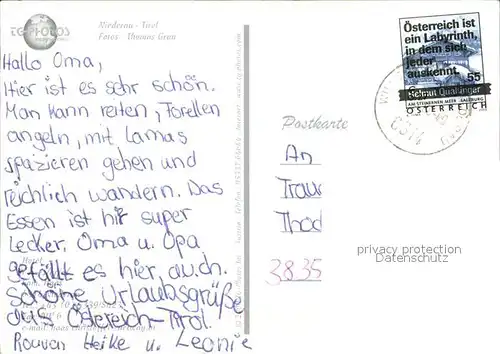 TOPHOTOS
Niederau - Tirol
Fotos Thomas Grau
Hallo Oma,
Hier ist es sehr schön.
Man kann reiten, Forellen
angeln, mit Lamas
spazieren gehen und
reichlich wandern. Das
Essen ist hir super
Lecker. Oma u. Opa
gefällt es hier auch.
Schöne Urlaubsgrüße
aus Östereich-Tirol.
Rouven Heike u. Leonie
Österreich ist
ein Labyrinth,
in dem sich
jeder
auskennt.
55
Helmut Qualtinger
AM STEINERNEN MEER SALZBURG
ÖSTERREICH
Postkarte
An
Trau
Thod
3835
privacy protection
Datenschutz